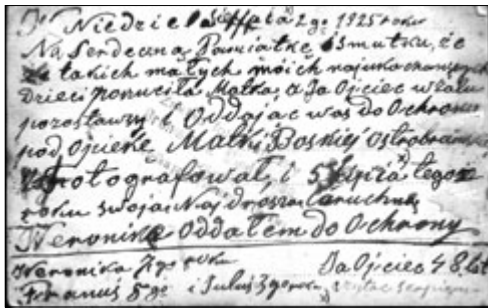 W Niedziele 2go 1925 roku
Na Serdeczną Pamiątkę i smutku, że
takich małych moich najukochanszych
Dzieci porzuciła Matka, a Ja Ojciec w żalu
pozostawszy i Oddając was do Ochrony
pod Opiekę Matki Boskiej Ostrobramskiej
fotografował, i 5 tegoż
roku swoją Najdroszą
Weronikę Oddałem do Ochrony
Weronika 7go roku Ja Ojciec 48 lat
Franuś 5go i Juluś 3go roku